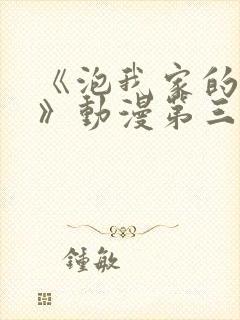 《泡我家的
》動漫第三
鍾敏